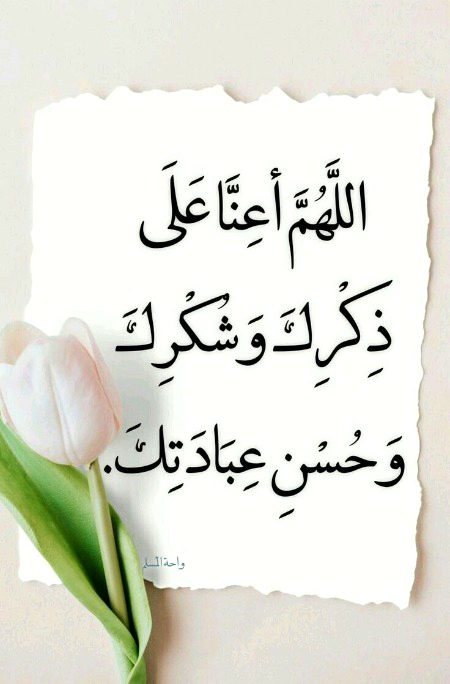 اللَّهُمَّ أعِنَّا عَلَى
ذِكْرِكَ وَشُكْرِكَ
وَحُسْنِ عِبَادَتِكَ.
واحة المسلم